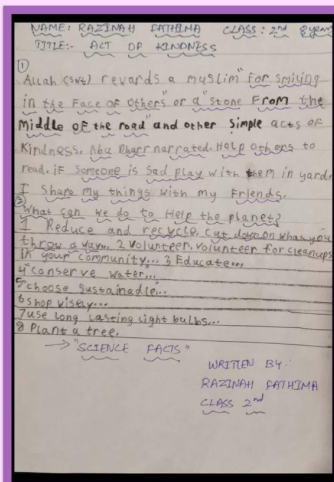 NAME: RAZINAH FATHIMA CLASS: 2nd
TITLE:- ACT OF KINDNESS
①
Allah (SWT) rewards a muslim "for smiling
in the Face of Others" or a "stone From the
Middle of the road" and other simple acts of
Kindness. Abu Dharr narrated. Help others to
read. if Someone is Sad play with them in yard.
I Share my things with my Friends.
②
What can we do to Help the planet?
1 Reduce and recycle. Cut down on what you
throw away... 2 Volunteer. Volunteer for cleanups
in your community... 3 Educate...
4 Conserve water...
5 choose sustainable...
6 shop wisely...
7 use long lasting light bulbs...
8 Plant a tree.
→ "SCIENCE FACTS"
WRITTEN BY:
RAZINAH FATHIMA
CLASS 2nd